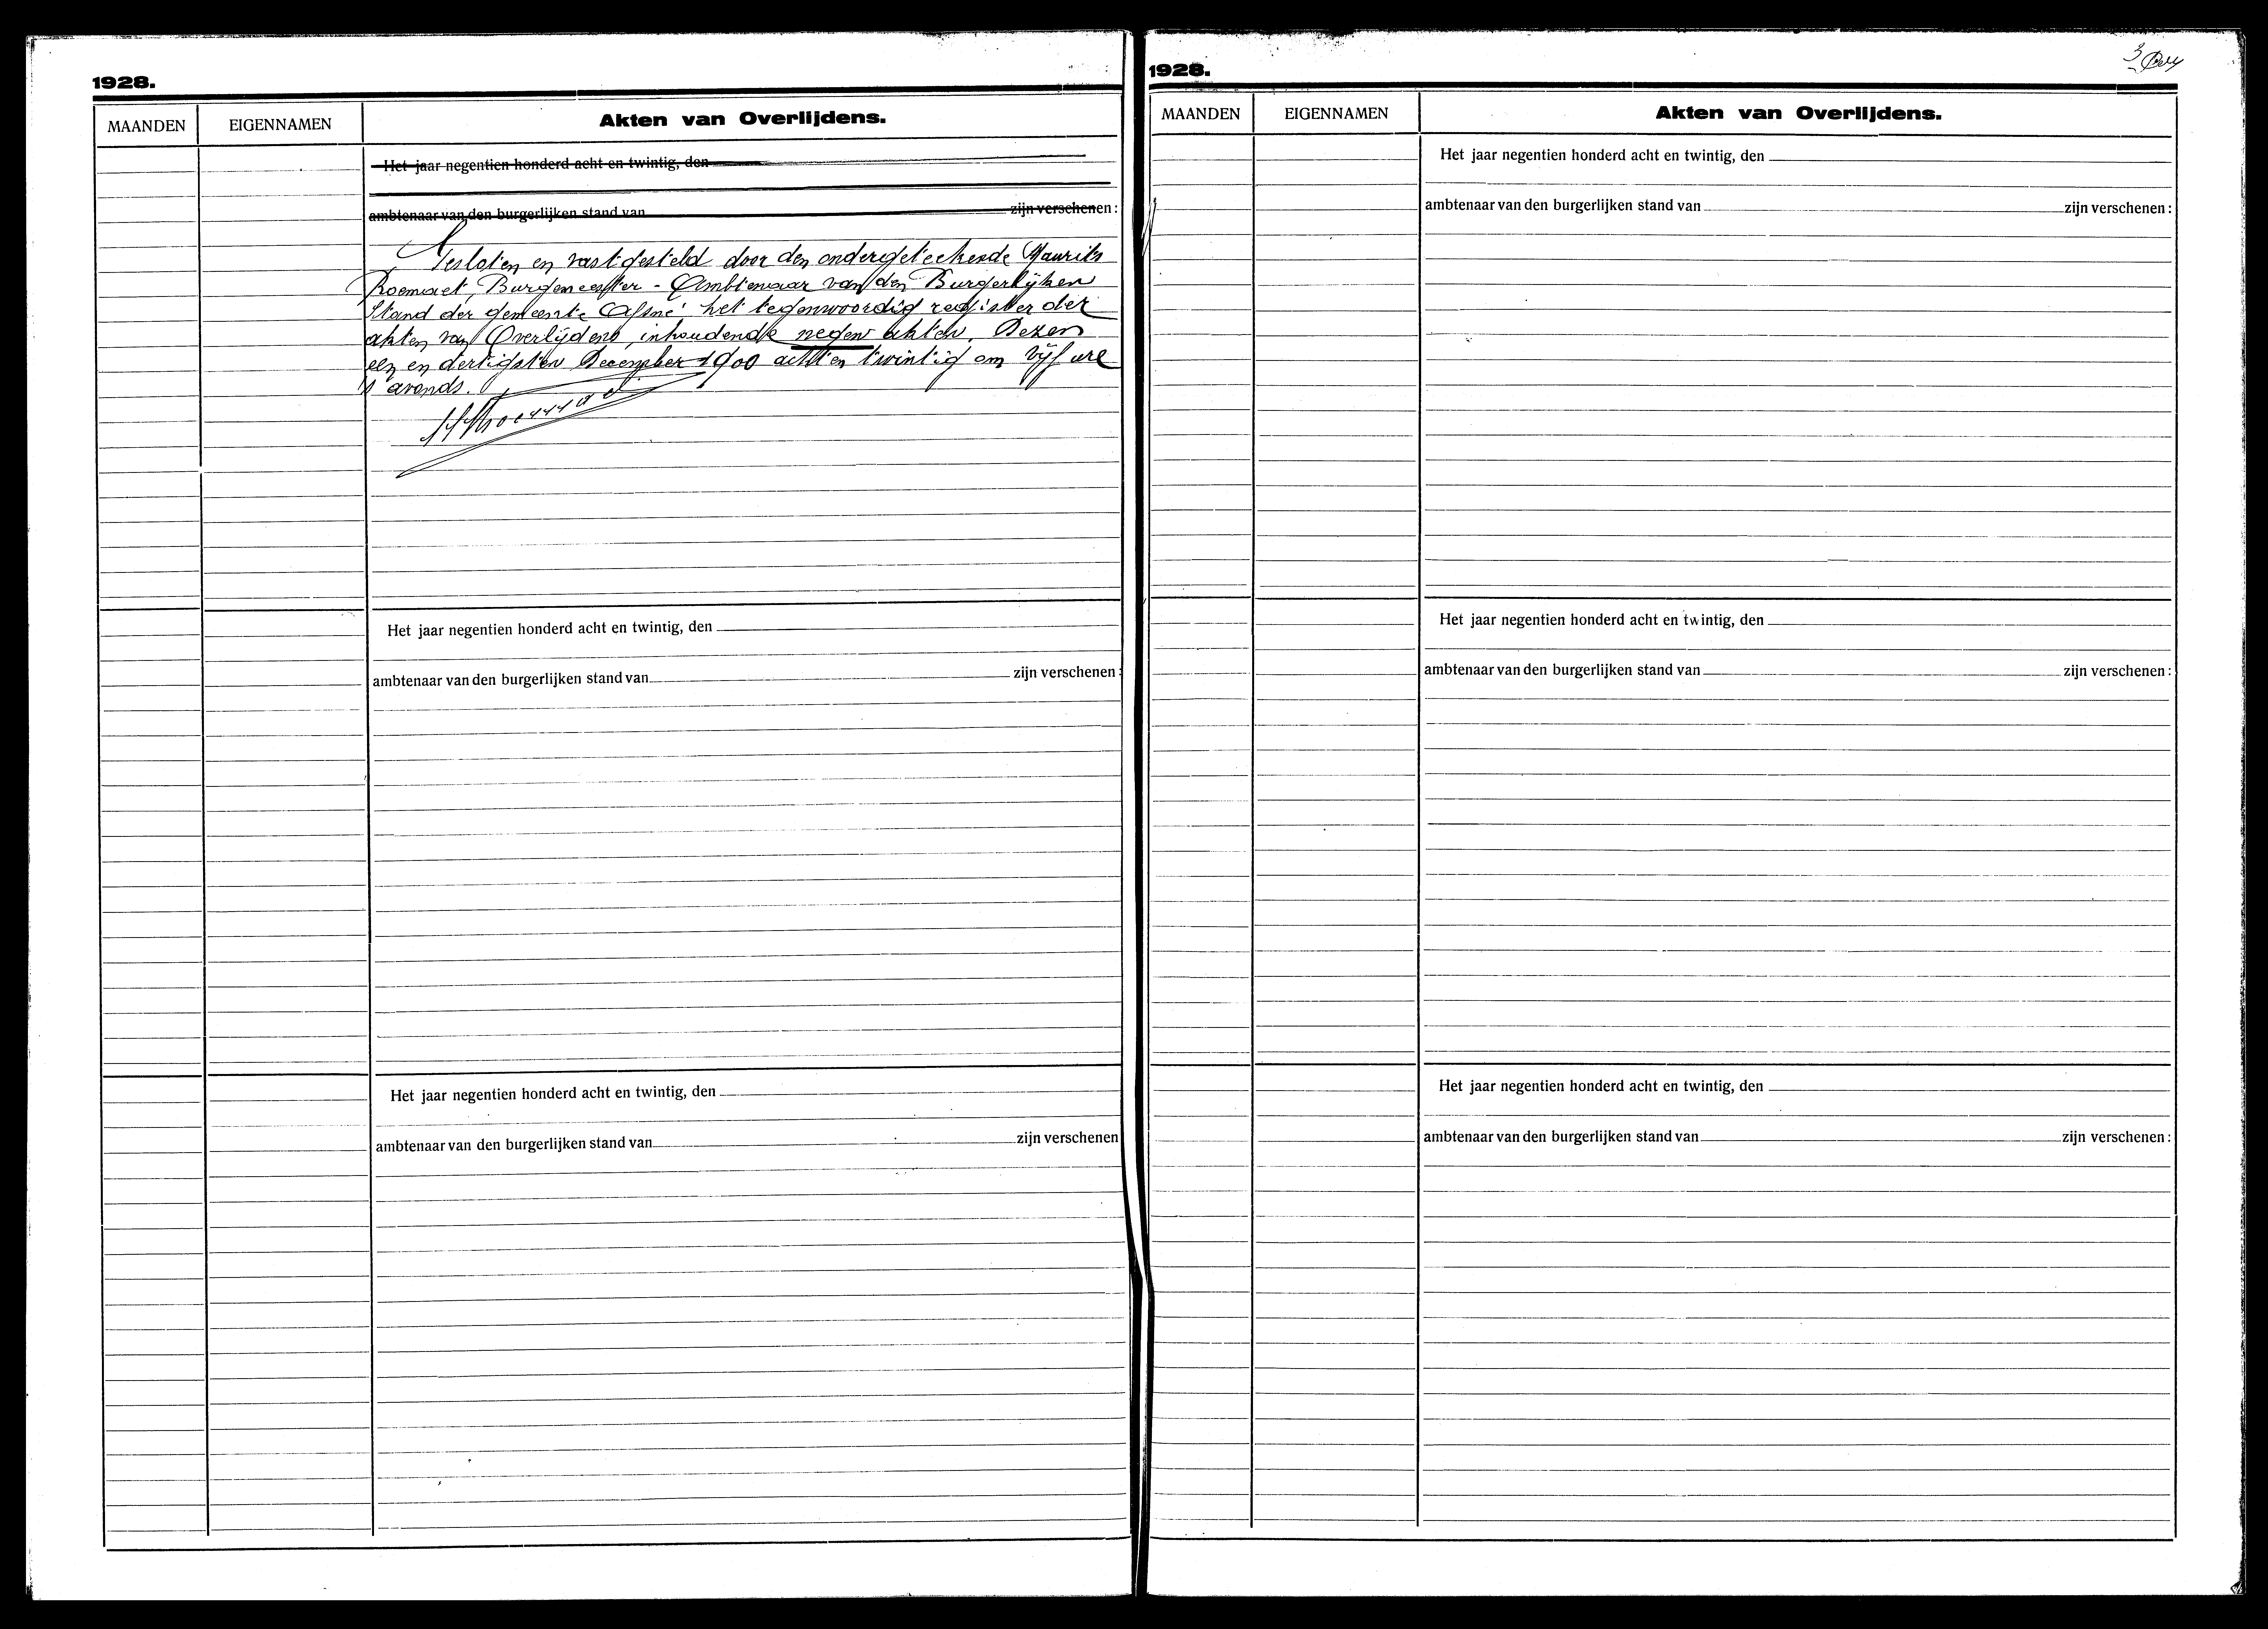 1928.
MAANDEN EIGENNAMEN Akten van Overlijdens.
Het jaar negentien honderd acht en twintig, den
ambtenaar van den burgerlijken stand van zijn verschenen:
Gesloten en vastgesteld door den ondergeteekende Maurits
Roemaet, Burgemeester - Ambtenaar van den Burgerlijken
Stand der gemeente Afsné het tegenwoordig register der
akten van Overlijdens, inhoudende negen akten. Dezen
een en dertigsten December 1900 acht en twintig om vijf ure
's avonds.
Het jaar negentien honderd acht en twintig, den
ambtenaar van den burgerlijken stand van zijn verschenen:
Het jaar negentien honderd acht en twintig, den
ambtenaar van den burgerlijken stand van zijn verschenen
1928.
3
MAANDEN EIGENNAMEN Akten van Overlijdens.
Het jaar negentien honderd acht en twintig, den
ambtenaar van den burgerlijken stand van zijn verschenen:
Het jaar negentien honderd acht en twintig, den
ambtenaar van den burgerlijken stand van zijn verschenen:
Het jaar negentien honderd acht en twintig, den
ambtenaar van den burgerlijken stand van zijn verschenen: